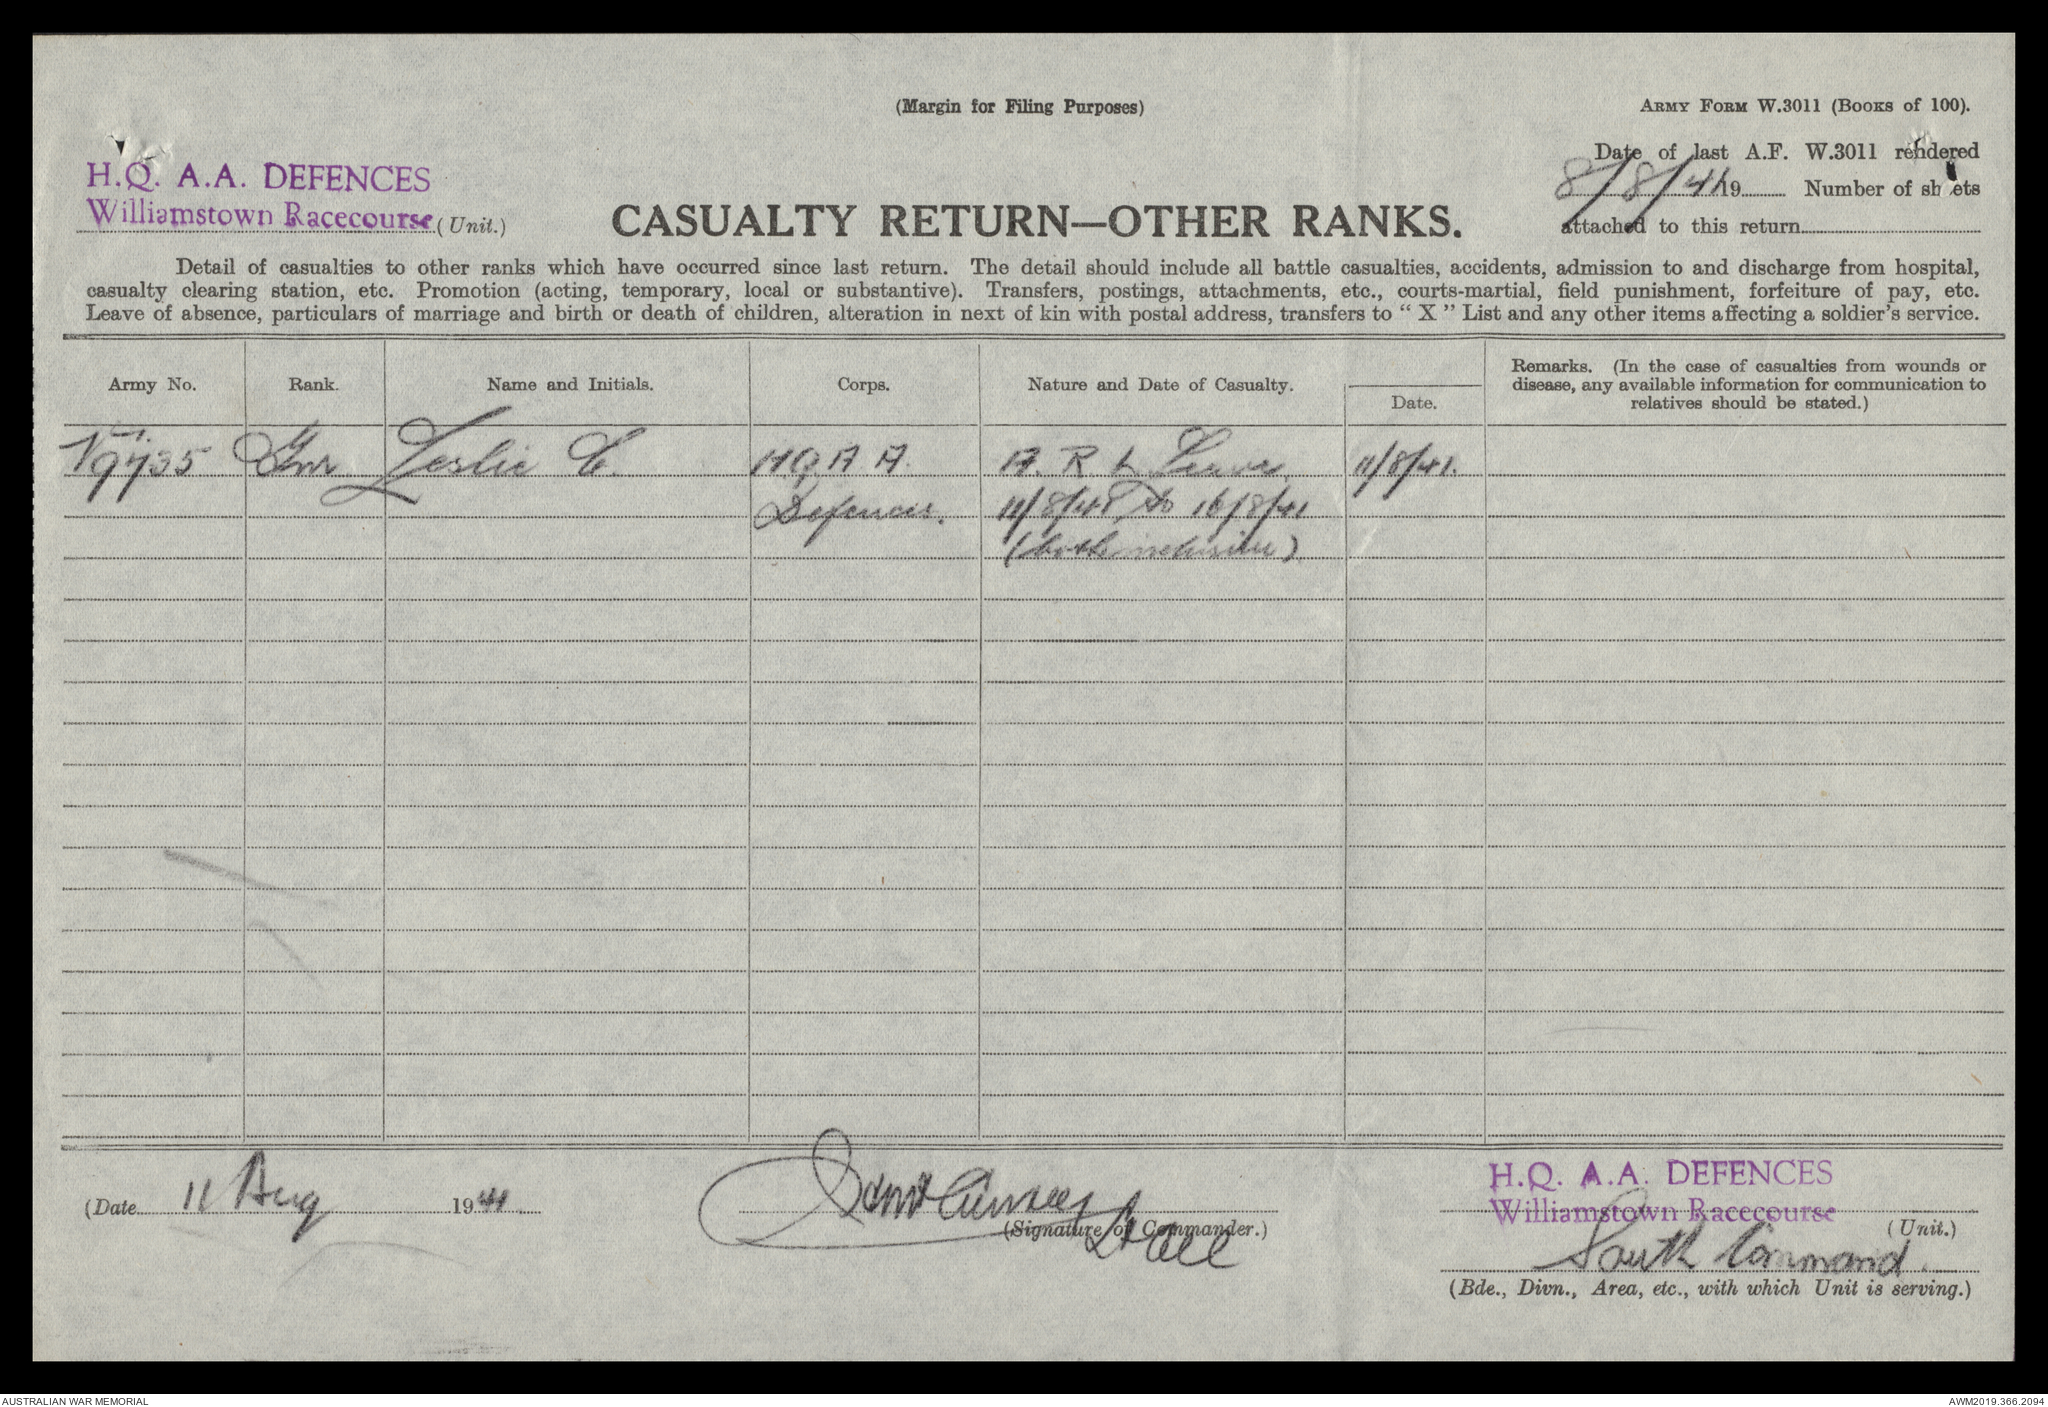 (Margin for Filing Purposes)
ARMY FORM W.3011 (BOOKS of 100).
H.Q. A.A. DEFENCES
Williamstown Racecourse (Unit.)
CASUALTY RETURN—OTHER RANKS.
Date of last A.F. W.3011 rendered
8/8/41 19 Number of sheets
attached to this return
Detail of casualties to other ranks which have occurred since last return. The detail should include all battle casualties, accidents, admission to and discharge from hospital,
casualty clearing station, etc. Promotion (acting, temporary, local or substantive). Transfers, postings, attachments, etc., courts-martial, field punishment, forfeiture of pay, etc.
Leave of absence, particulars of marriage and birth or death of children, alteration in next of kin with postal address, transfers to " X " List and any other items affecting a soldier's service.
Army No. Rank. Name and Initials. Corps. Nature and Date of Casualty. Date. Remarks. (In the case of casualties from wounds or
disease, any available information for communication to
relatives should be stated.)
V9735 Gnr Leslie C. HQ A A. A. R L Leave 11/8/41.
Defences. 11/8/41 to 16/8/41
(both inclusive)
(Date 11 Aug 1941.
(Signature of Commander.)
H.Q. A.A. DEFENCES
Williamstown Racecourse (Unit.)
South Command.
(Bde., Divn., Area, etc., with which Unit is serving.)
AUSTRALIAN WAR MEMORIAL
AWM2019.366.2094